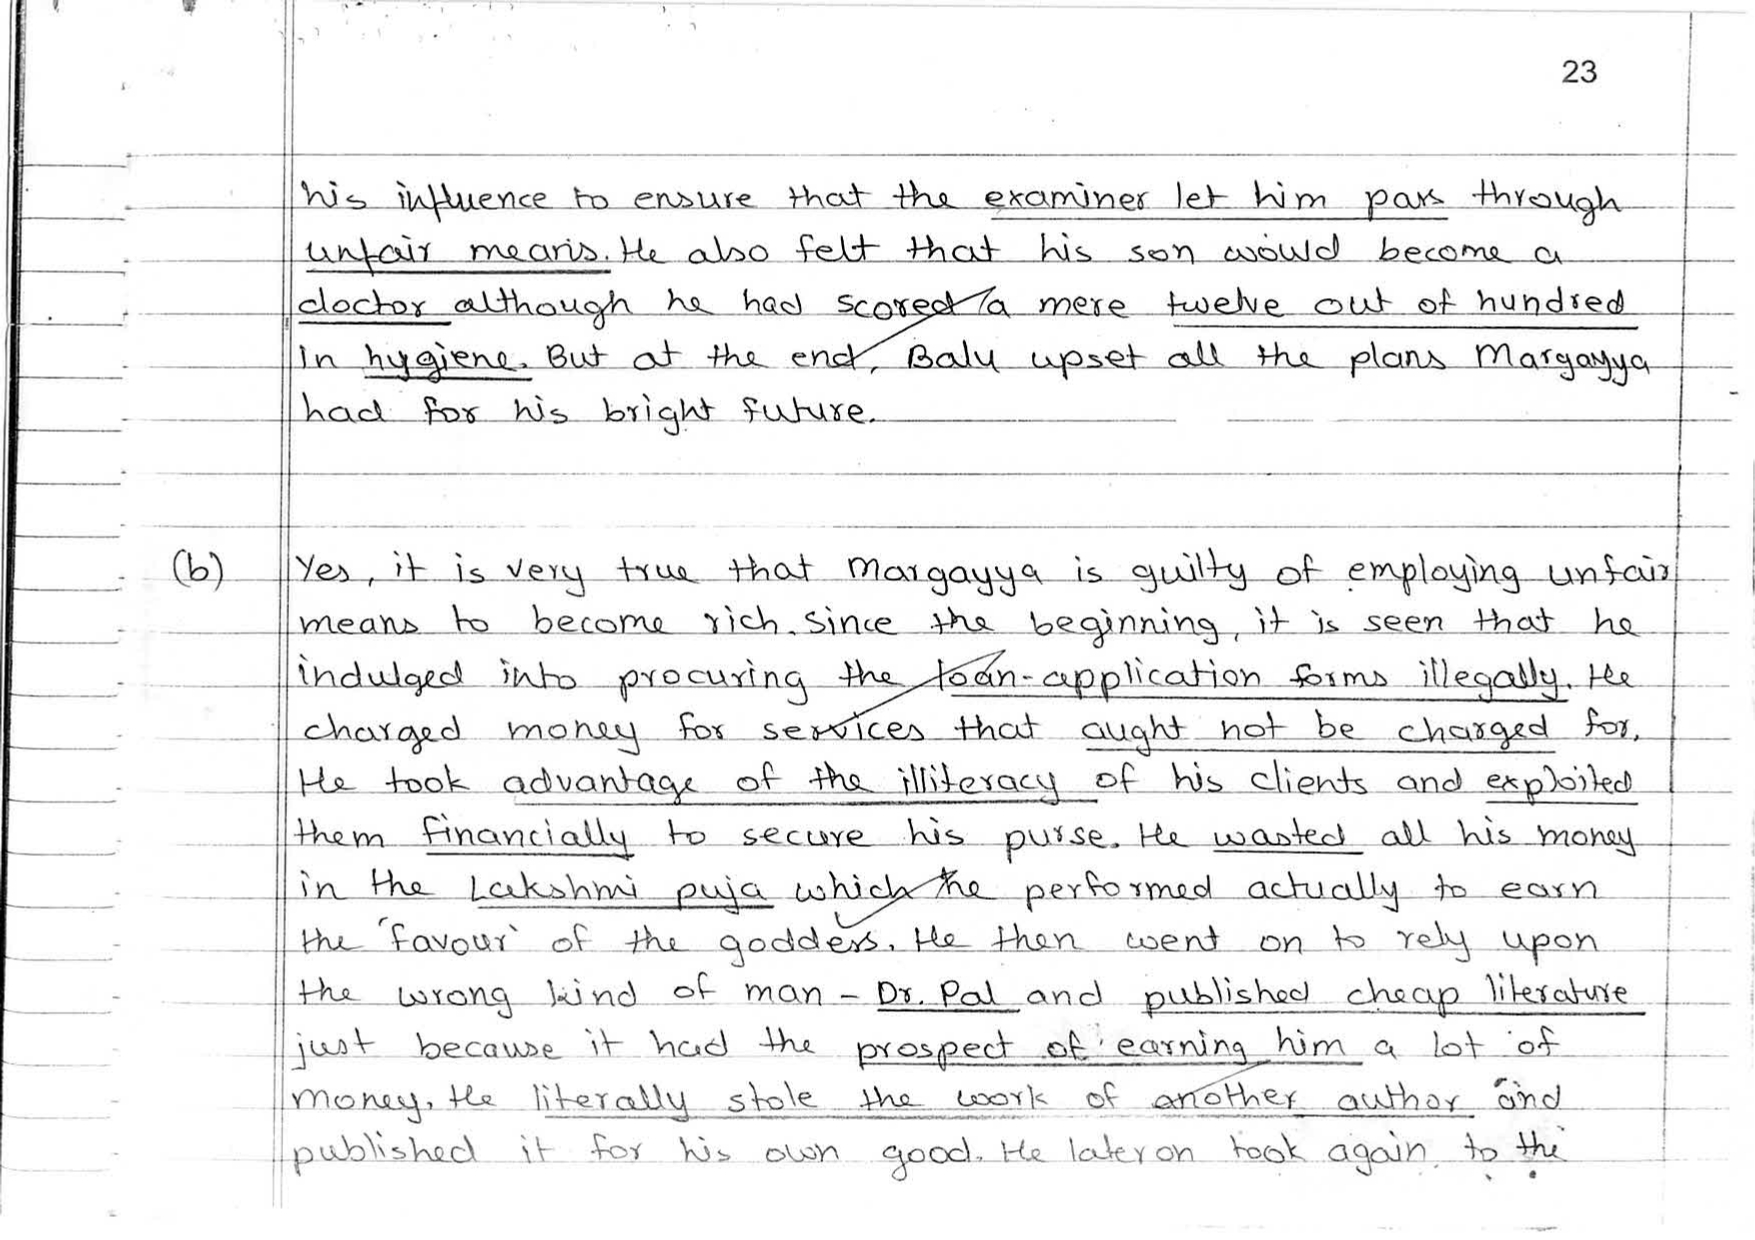 23
his influence to ensure that the examiner let him pass through
unfair means. He also felt that his son would become a
doctor although he had scored a mere twelve out of hundred
in hygiene. But at the end, Balu upset all the plans Margayya
had for his bright future.
(b) Yes, it is very true that Margayya is guilty of employing unfair
means to become rich. Since the beginning, it is seen that he
indulged into procuring the loan-application forms illegally. He
charged money for services that aught not be charged for.
He took advantage of the illiteracy of his clients and exploited
them financially to secure his purse. He wasted all his money
in the Lakshmi puja which he performed actually to earn
the 'favour' of the goddess. He then went on to rely upon
the wrong kind of man - Dr. Pal and published cheap literature
just because it had the prospect of earning him a lot of
money. He literally stole the work of another author and
published it for his own good. He later on took again to the